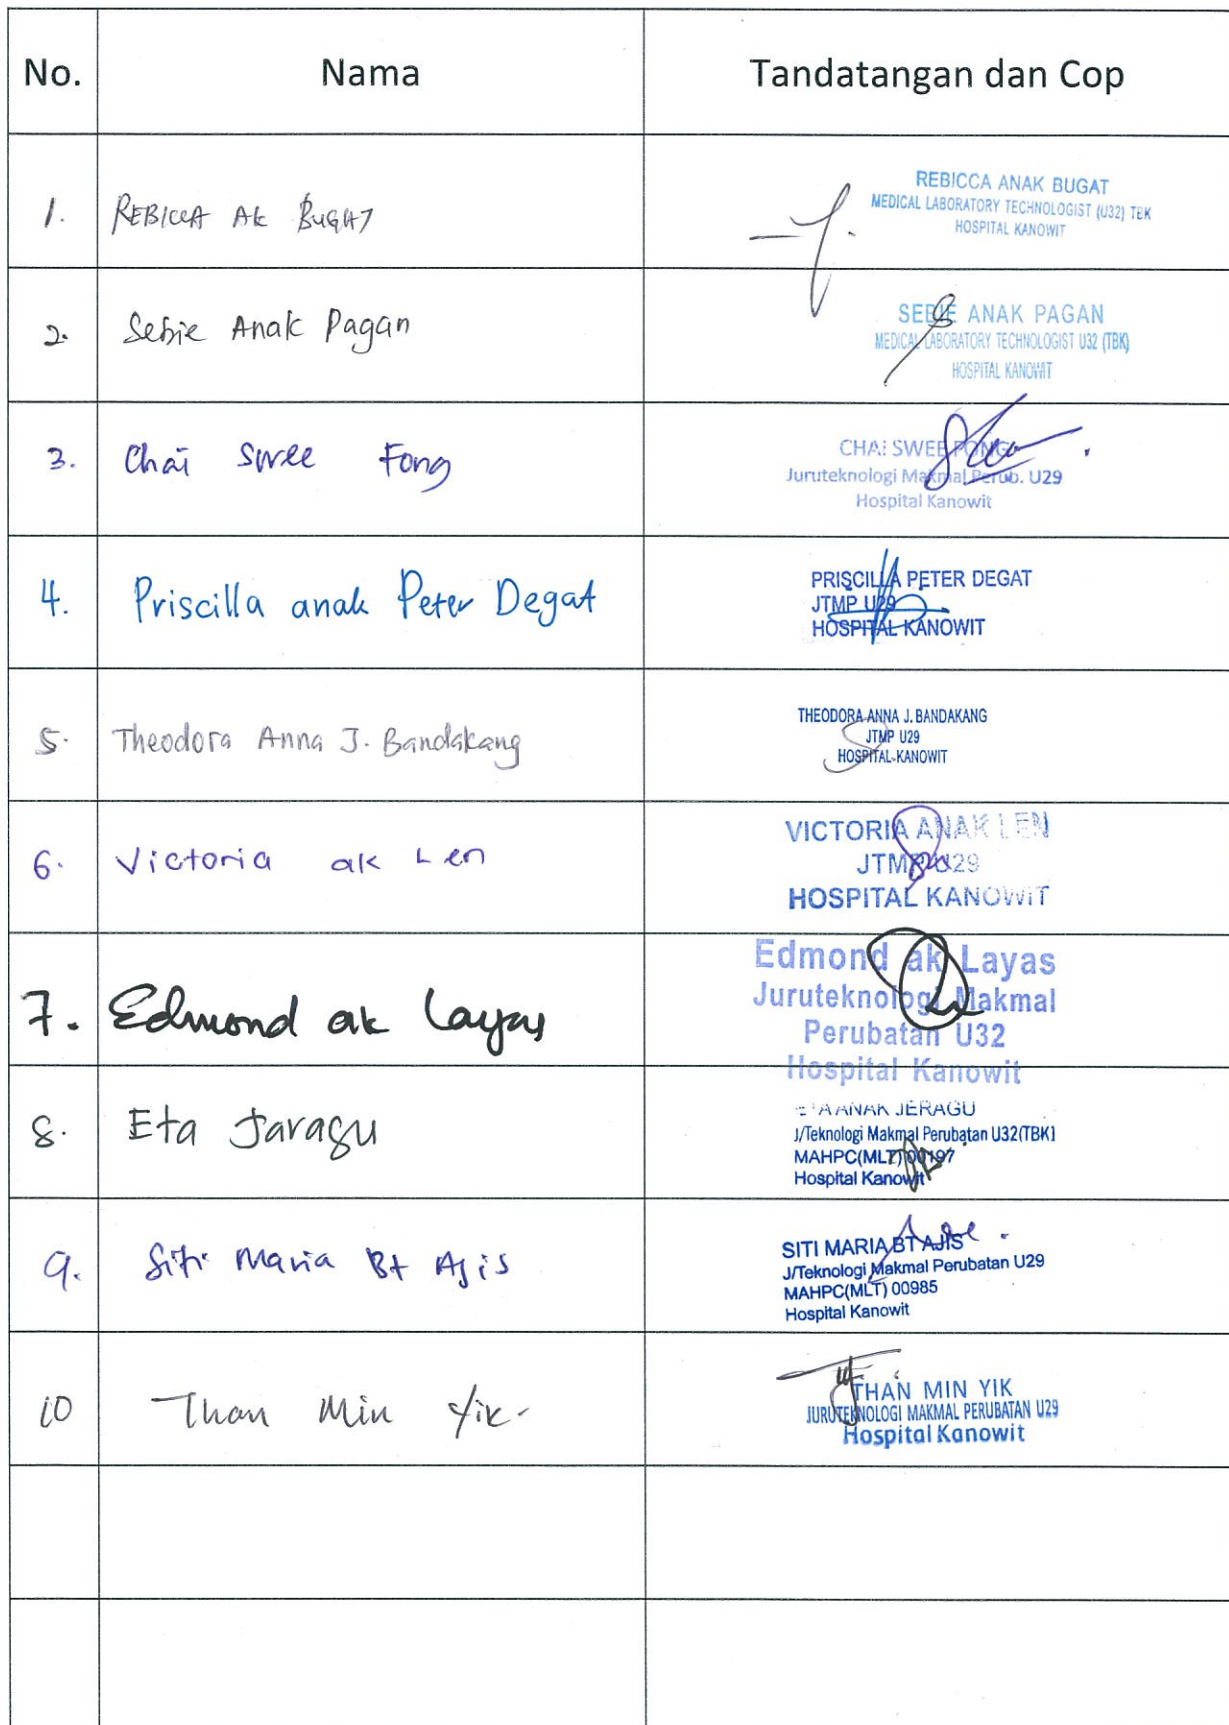 No. Nama Tandatangan dan Cop
1. REBICCA AK BUGAT
REBICCA ANAK BUGAT
MEDICAL LABORATORY TECHNOLOGIST (U32) TBK
HOSPITAL KANOWIT
2. Sebie Anak Pagan
SEBIE ANAK PAGAN
MEDICAL LABORATORY TECHNOLOGIST U32 (TBK)
HOSPITAL KANOWIT
3. Chai Swee Fong
CHAI SWEE FONG
Juruteknologi Makmal Perub. U29
Hospital Kanowit
4. Priscilla anak Peter Degat
PRISCILLA PETER DEGAT
JTMP U29
HOSPITAL KANOWIT
5. Theodora Anna J. Bandakang
THEODORA ANNA J. BANDAKANG
JTMP U29
HOSPITAL KANOWIT
6. Victoria ak Len
VICTORIA ANAK LEN
JTMP U29
HOSPITAL KANOWIT
7. Edmond ak Layas
Edmond ak Layas
Juruteknologi Makmal
Perubatan U32
Hospital Kanowit
8. Eta Jaragu
ETA ANAK JERAGU
J/Teknologi Makmal Perubatan U32(TBK)
MAHPC(MLT) 00197
Hospital Kanowit
9. Siti Maria Bt Ajis
SITI MARIA BT AJIS
J/Teknologi Makmal Perubatan U29
MAHPC(MLT) 00985
Hospital Kanowit
10 Than Min Yik
THAN MIN YIK
JURUTEKNOLOGI MAKMAL PERUBATAN U29
Hospital Kanowit